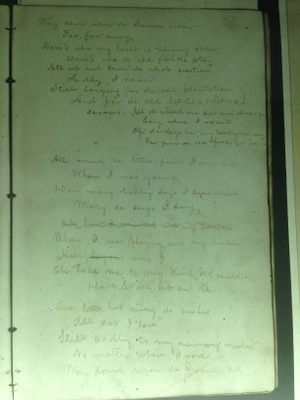 Way down upon de Swanee ribber
Far, far away
Dere's wha my heart is turning ebber
Dere's wha de old folks stay
All up and down de whole creation
Sadly I roam
Still longing for de old plantation
And for de old folks at home
Chorus. All de world am sad and dreary
Eby where I roam
Oh! darkeys how my heart grows weary
Far from de old folks at home
All round de little farm I wandered
When I was young
Den many happy days I squandered
Many de songs I sung
When I was playing wid my brudder
Happy was I
Oh take me to my kind old mudder
Dere let me live and die
One little hut among de bushes
All dat I love
Still sadly to my memory rushes
No matter where I rove
Way down upon de Swanee